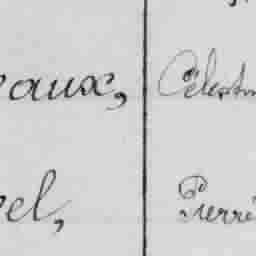 eaux, Célestin
el, Pierre